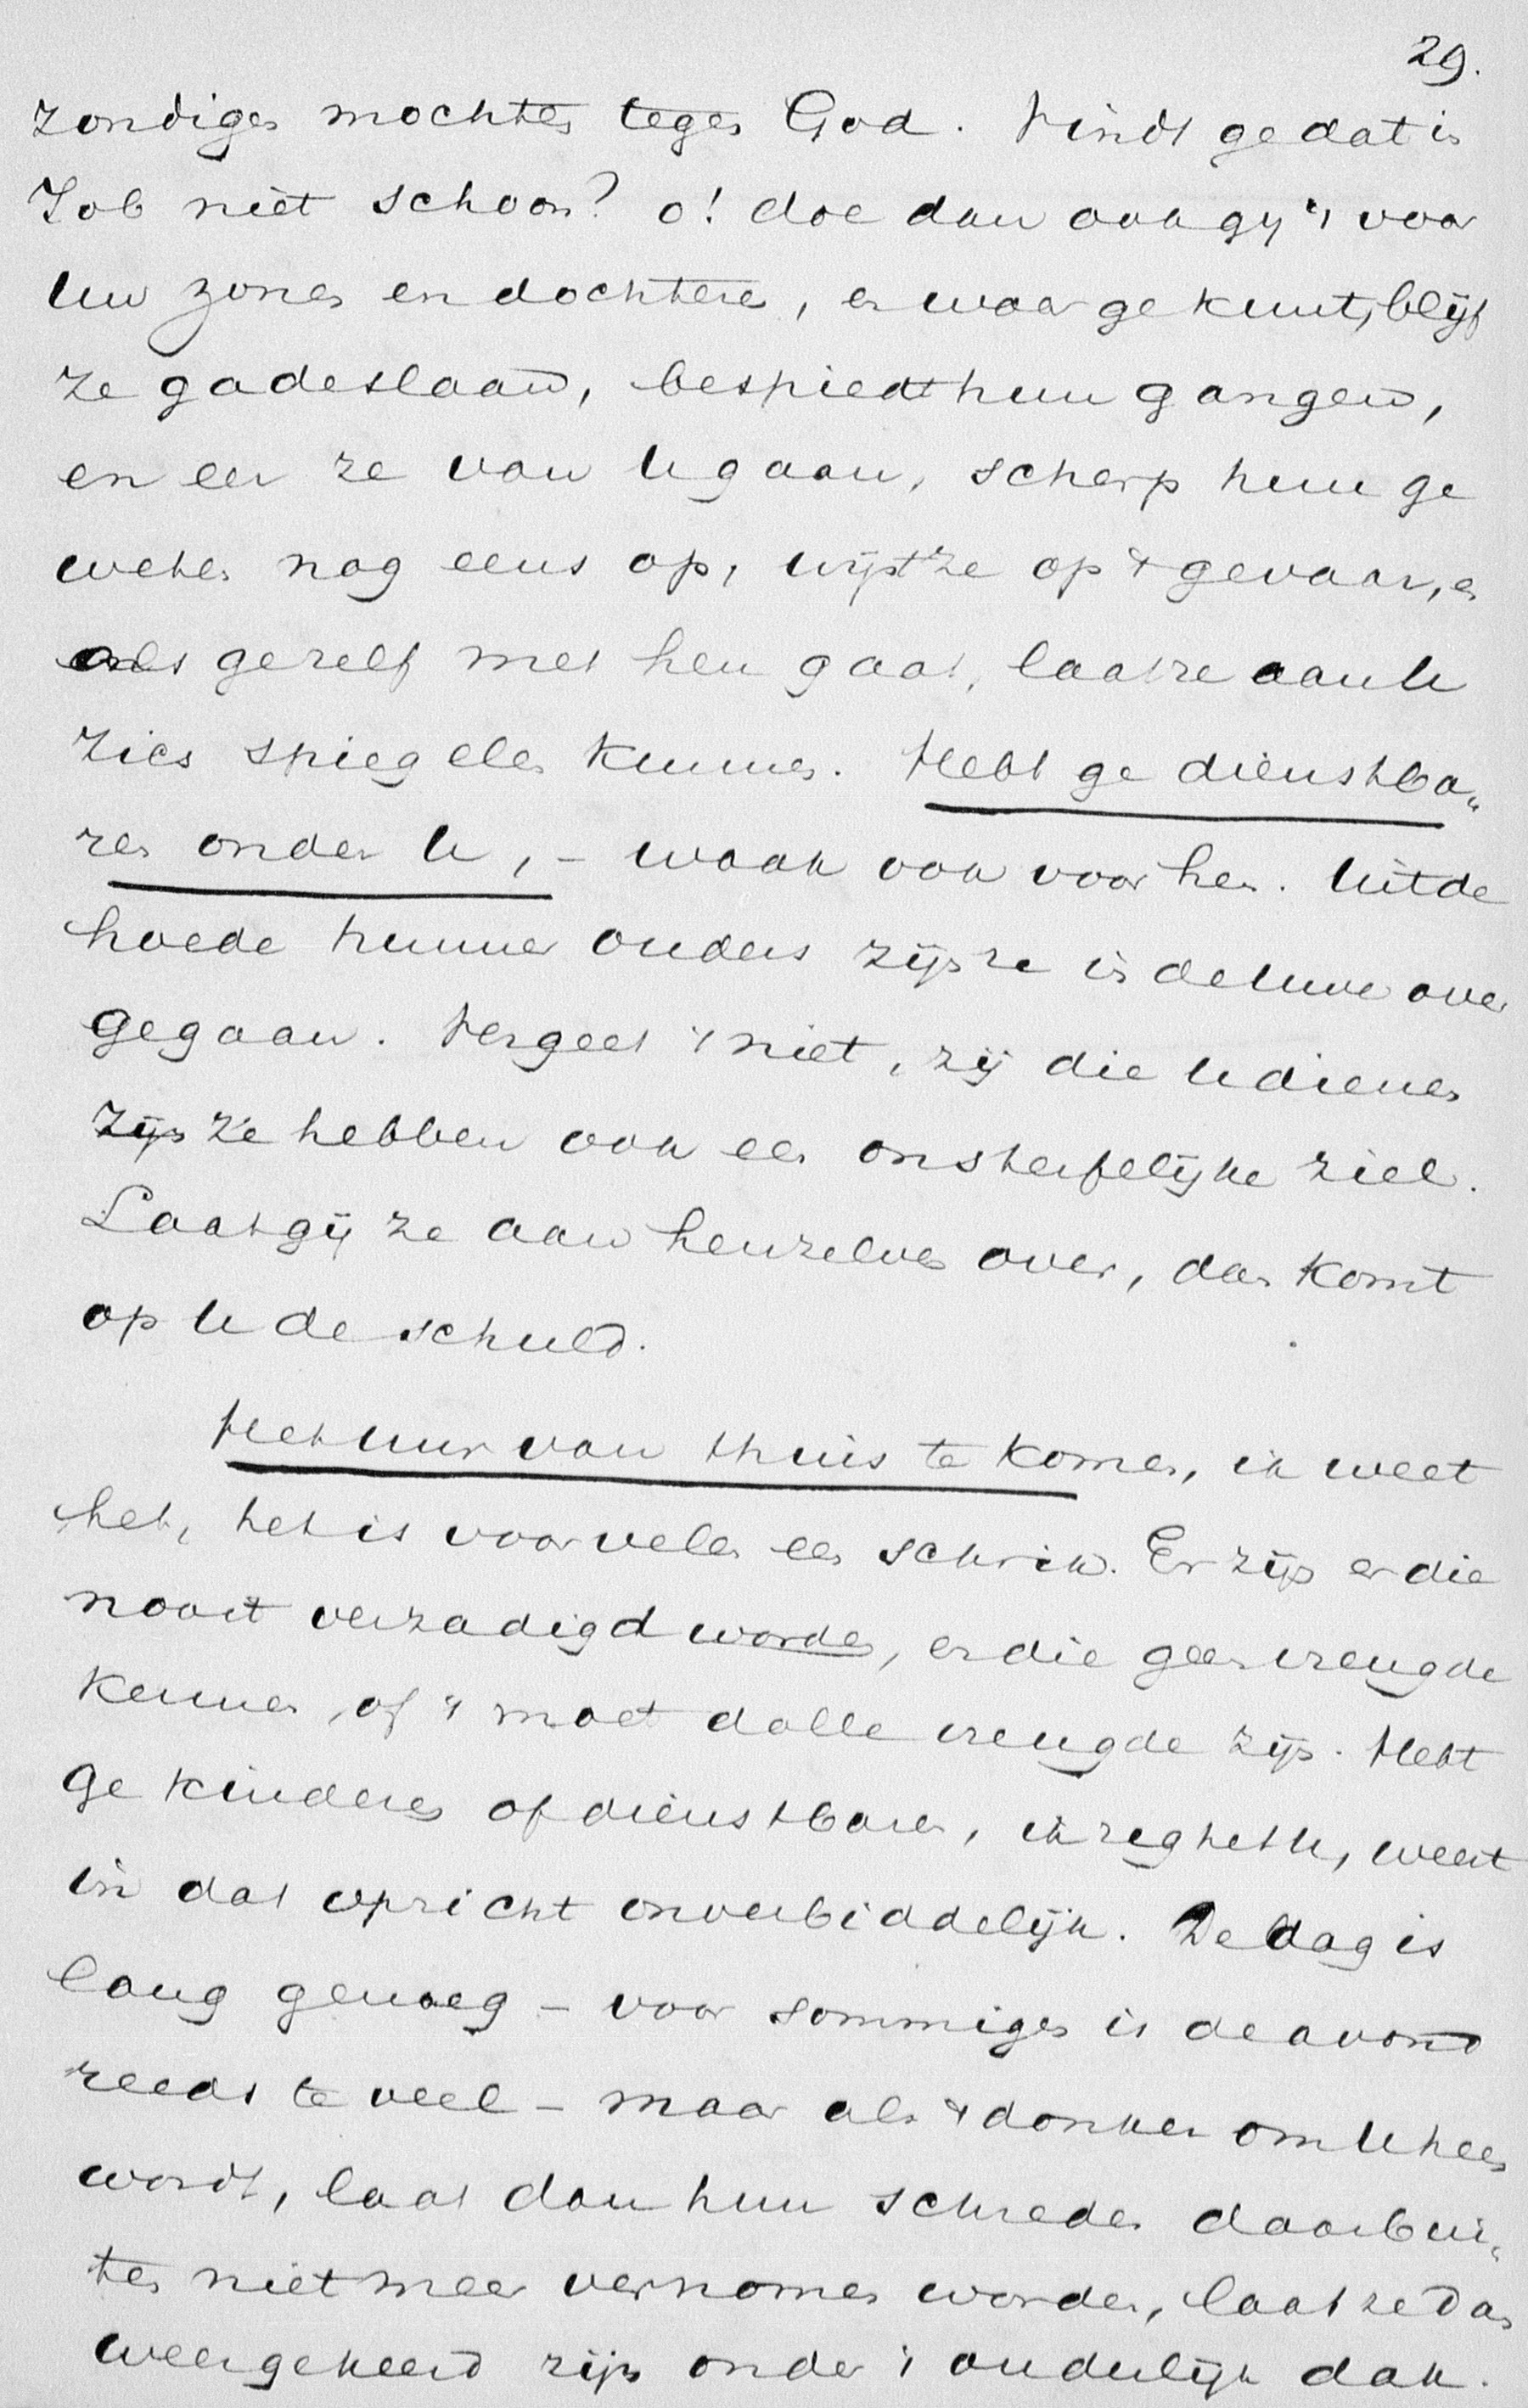 29.
zondigen mochten tegen God. Vindt ge dat in
Job niet schoon? o! doe dan ook gij 't voor
Uw zonen en dochteren, en waar ge kunt, blijf
ze gadeslaan, bespiedt hun gangen,
en eer ze van U gaan, scherp hun ge
weten nog eens op, wijst ze op 't gevaar, en
als ge zelf met hen gaat, laat ze aan U
zich spiegelen kunnen. Hebt ge dienstba„
ren onder U, – waak ook voor hen. Uit de
hoede hunner ouders zijn ze in de Uwe over
gegaan. Vergeet 't niet, zij die U dienen
zijn ze hebben ook een onsterfelijke ziel.
Laat gij ze aan henzelven over, dan komt
op U de schuld.
Het uur van thuis te komen, ik weet
het, het is voor velen een schrik. Er zijn er die
nooit verzadigd worden, en die geen vreugde
kennen, of 't moet dolle vreugde zijn. Hebt
ge kinderen of dienstbaren, ik zeg het U, weest
in dat opzicht onverbiddelijk. De dag is
lang genoeg – voor sommigen is de avond
reeds te veel – maar als 't donker om U heen
wordt, laat dan hun schreden daarbui„
ten niet meer vernomen worden, laat ze dan
weergekeerd zijn onder 't ouderlijk dak.